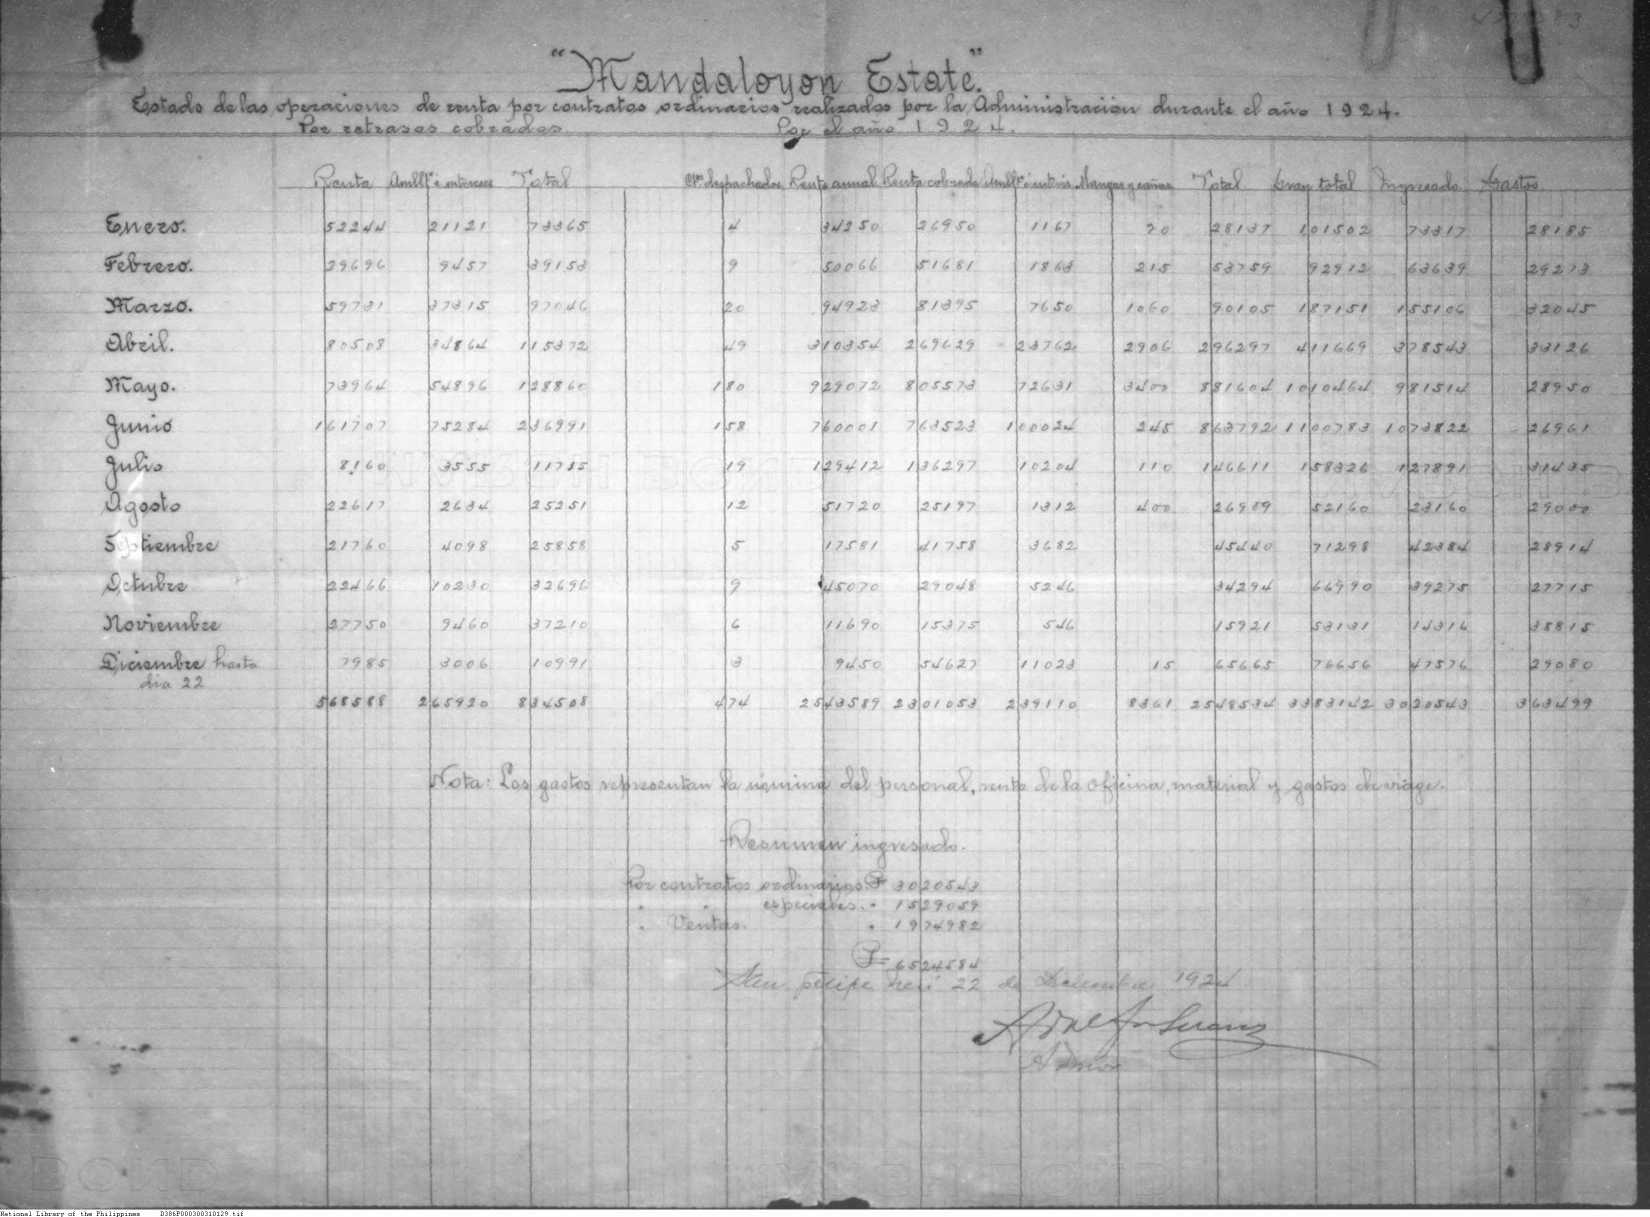 "Mandaloyon Estate".
Estado de las operaciones de renta por contratos ordinarios realizados por la Administración durante el año 1924.
Por retrasos cobrados Por el año 1924.
Renta Amllº é intereses Total Ctos despachados Renta anual Renta cobrada Amllº é interés Mangas y cañas Total Gran total Ingresado Gastos
Enero. 52244 21121 73365 4 34250 26950 1167 20 28137 101502 73317 28185
Febrero. 29696 9457 39153 9 50066 51681 1863 215 53759 92912 63639 29273
Marzo. 59731 37315 97046 20 94923 81395 7650 1060 90105 187151 155106 32045
Abril. 80508 34864 115372 49 310354 269629 23762 2906 296297 411669 378543 33126
Mayo. 73964 54896 128860 180 929072 805573 72631 3400 881604 1010464 981514 28950
Junio 161707 75284 236991 158 760001 763523 100024 245 863792 1100783 1073822 26961
Julio 8160 3555 11715 19 129412 136297 10204 110 146611 158326 127891 31435
Agosto 22617 2634 25251 12 51720 25197 1312 400 26909 52160 23160 29000
Septiembre 21760 4098 25858 5 17581 41758 3682 45440 71298 42384 28914
Octubre 22466 10230 32696 9 45070 29048 5246 34294 66990 39275 27715
Noviembre 27750 9460 37210 6 11690 15375 546 15921 53131 14316 38815
Diciembre hasta 7985 3006 10991 3 9450 54627 11023 15 65665 76656 47576 29080
dia 22
568588 265920 834508 474 2543589 2301053 239110 8361 2548534 3383142 3020543 363499
Nota: Los gastos representan la nómina del personal, renta de la oficina, material y gastos de viage.
Resumen ingresado.
Por contratos ordinarios ₱ 3020543
" " especiales. " 1529059
" Ventas. " 1974982
₱= 6524584
San Felipe Neri 22 de Diciembre 1924
National Library of the Philippines D386P000300310129.tif